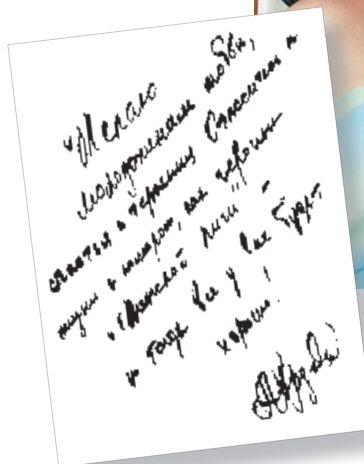 "Желаю
молодоженам любви,
счастья и терпения. Относитесь к
жизни с юмором, как героини
"Женской лиги" -
и тогда все у вас будет
хорошо!